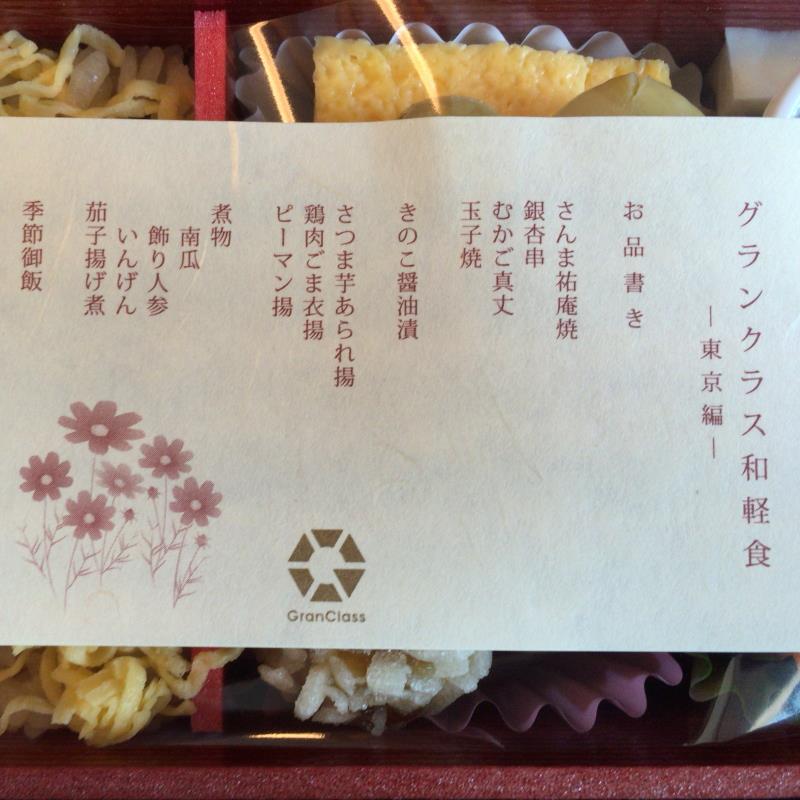 グランクラス和軽食
―東京編―
お品書き
さんま祐庵焼
銀杏串
むかご真丈
玉子焼
きのこ醤油漬
さつま芋あられ揚
鶏肉ごま衣揚
ピーマン揚
煮物
南瓜
飾り人参
いんげん
茄子揚げ煮
季節御飯
GranClass